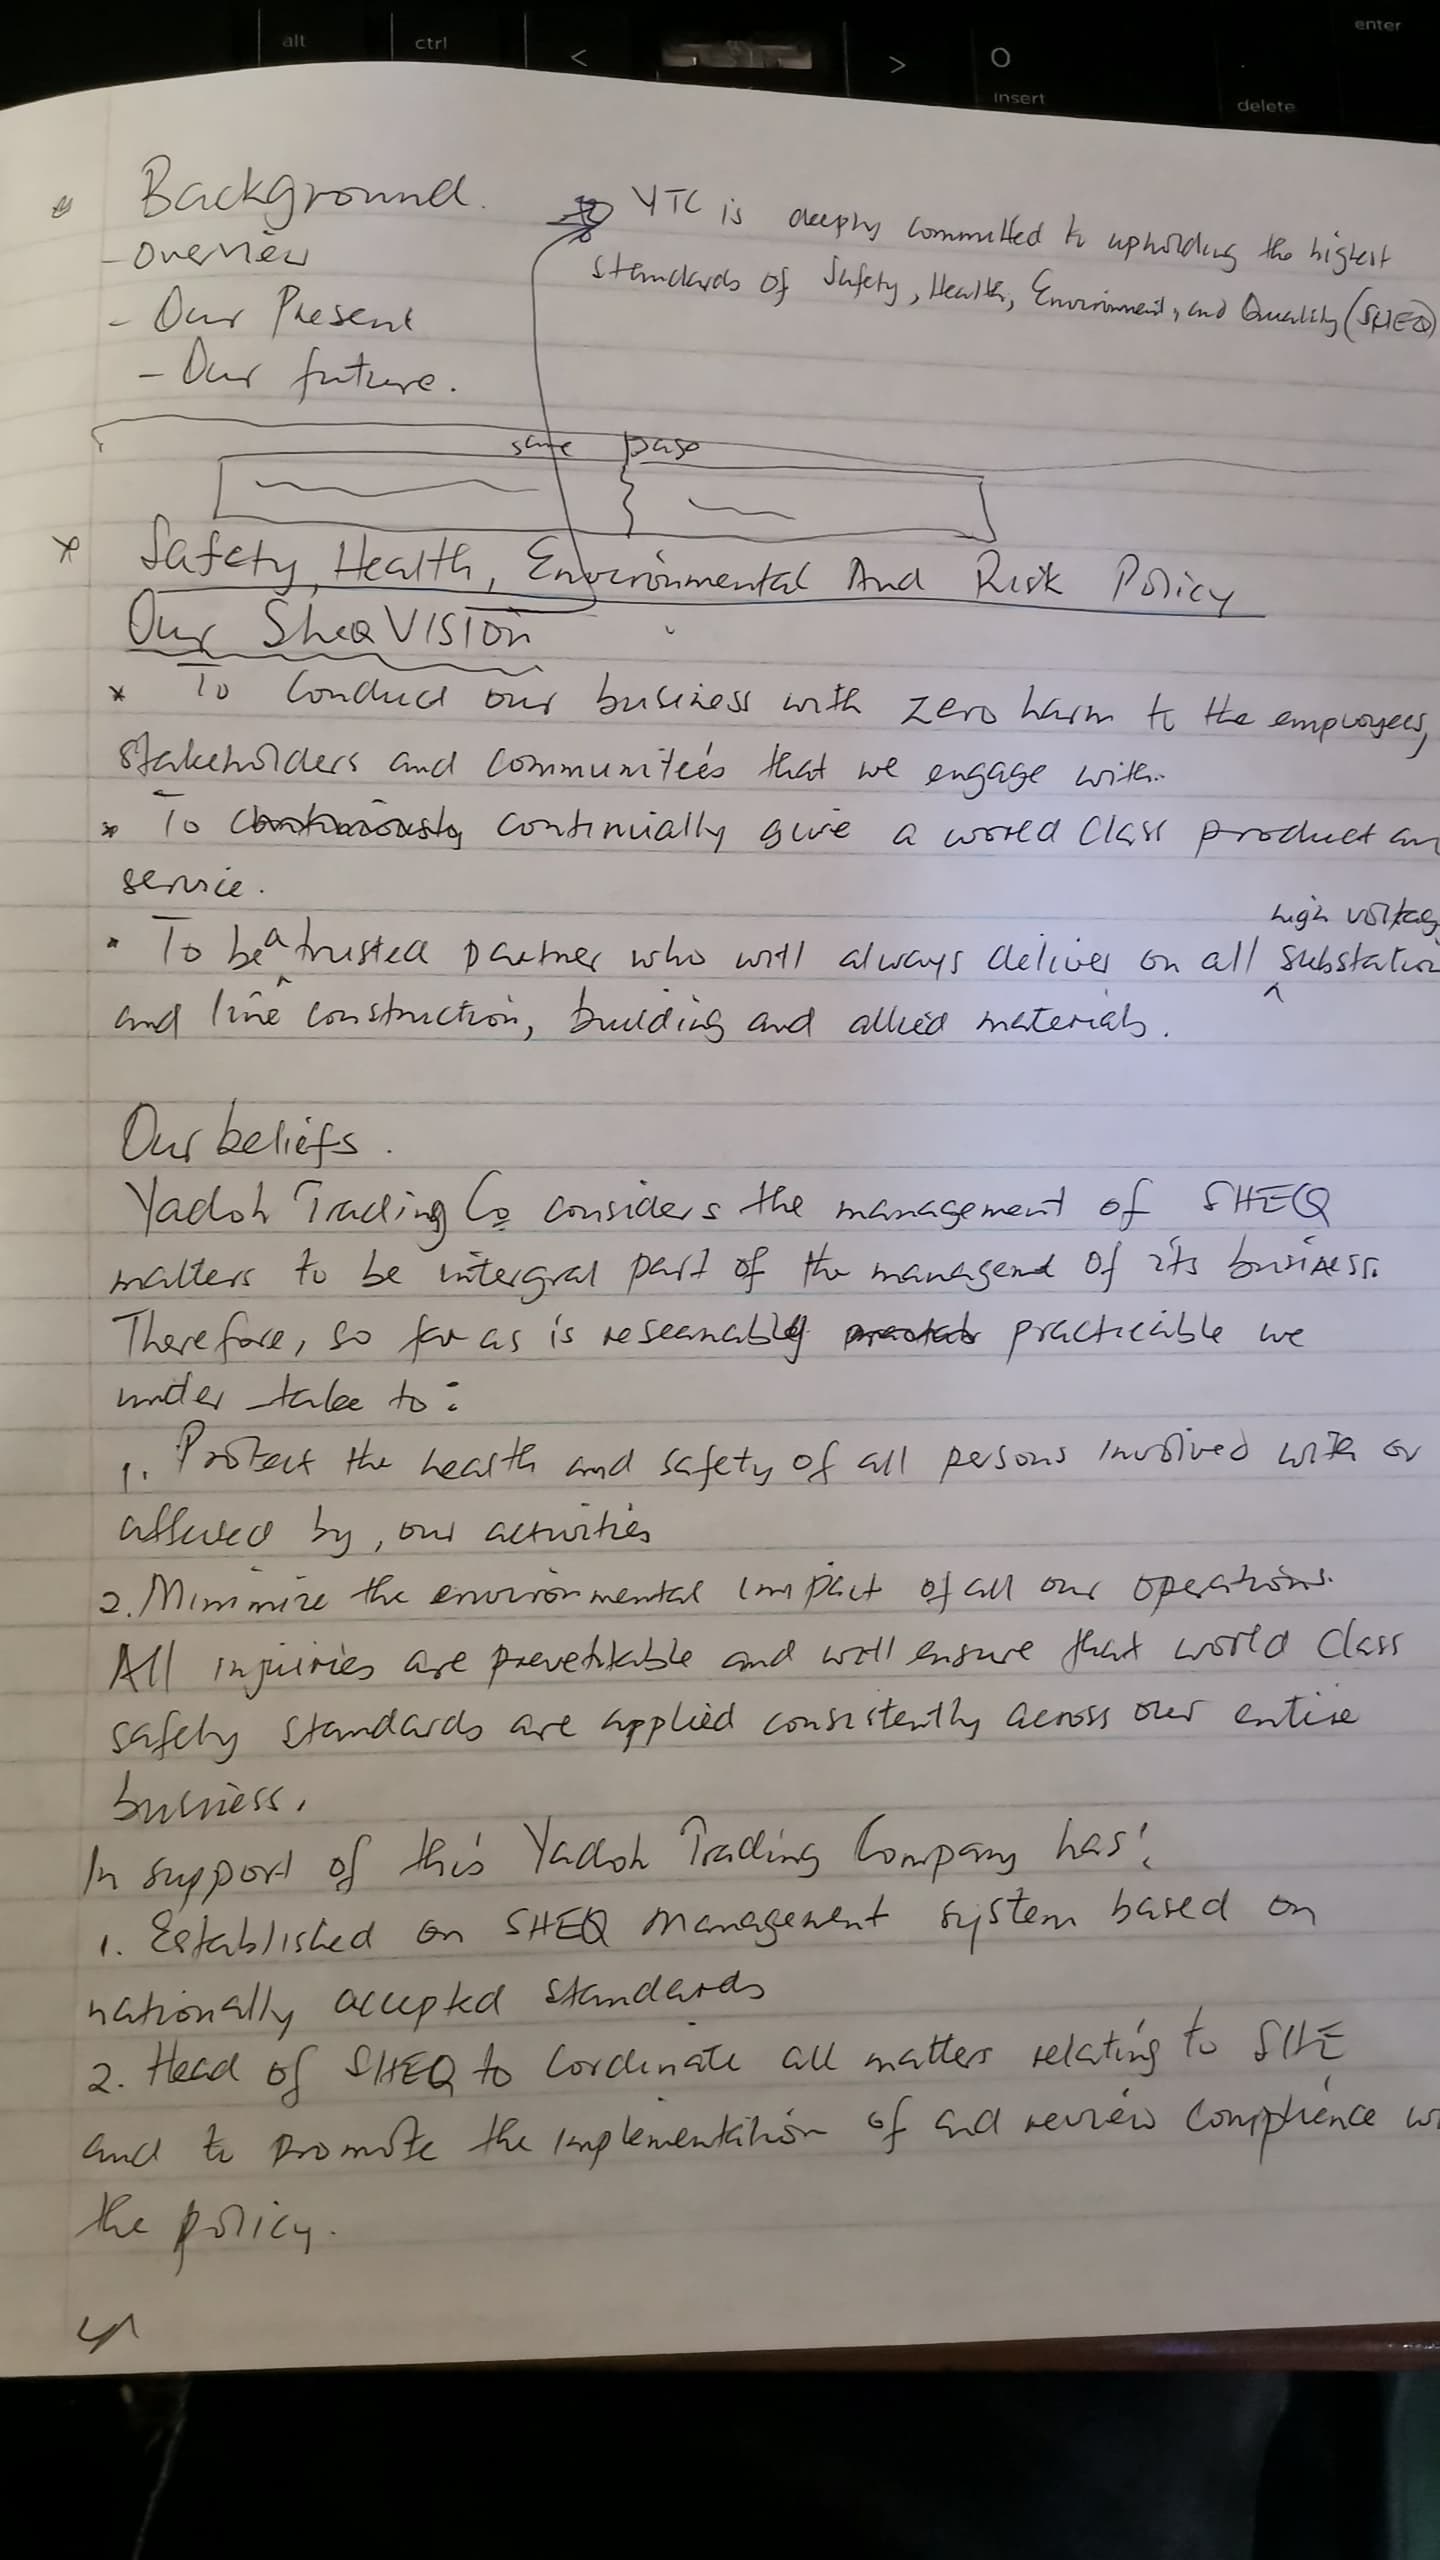 alt ctrl < > O insert . delete enter
Background.
- Overview
- Our Present
- Our future.
YTC is deeply committed to upholding the highest
standards of Safety, Health, Environment, and Quality (SHEQ)
same page
* Safety, Health, Environmental And Risk Policy
Our SheQ VISION
* To conduct our business with zero harm to the employees,
stakeholders and communities that we engage with.
* To continually give a world class product an
service.
high voltag
• To be a trusted partner who will always deliver on all substation
and line construction, building and allied materials.
Our beliefs.
Yadoh Trading Co considers the management of SHEQ
matters to be intergral part of the managent of its business.
Therefore, so far as is reseanably practicable we
under take to:
1. Protect the health and safety of all persons involved with or
affected by, our activities
2. Minimize the environmental impact of all our operations.
All injuiries are prevetitable and will ensure that world class
safety standards are applied consistently across our entire
business.
In support of this Yadoh Trading Company has:
1. Established on SHEQ Management system based on
nationally accepted standards
2. Head of SHEQ to Cordinate all matters relating to SHE
and to promote the implementation of and review complience wi
the policy.